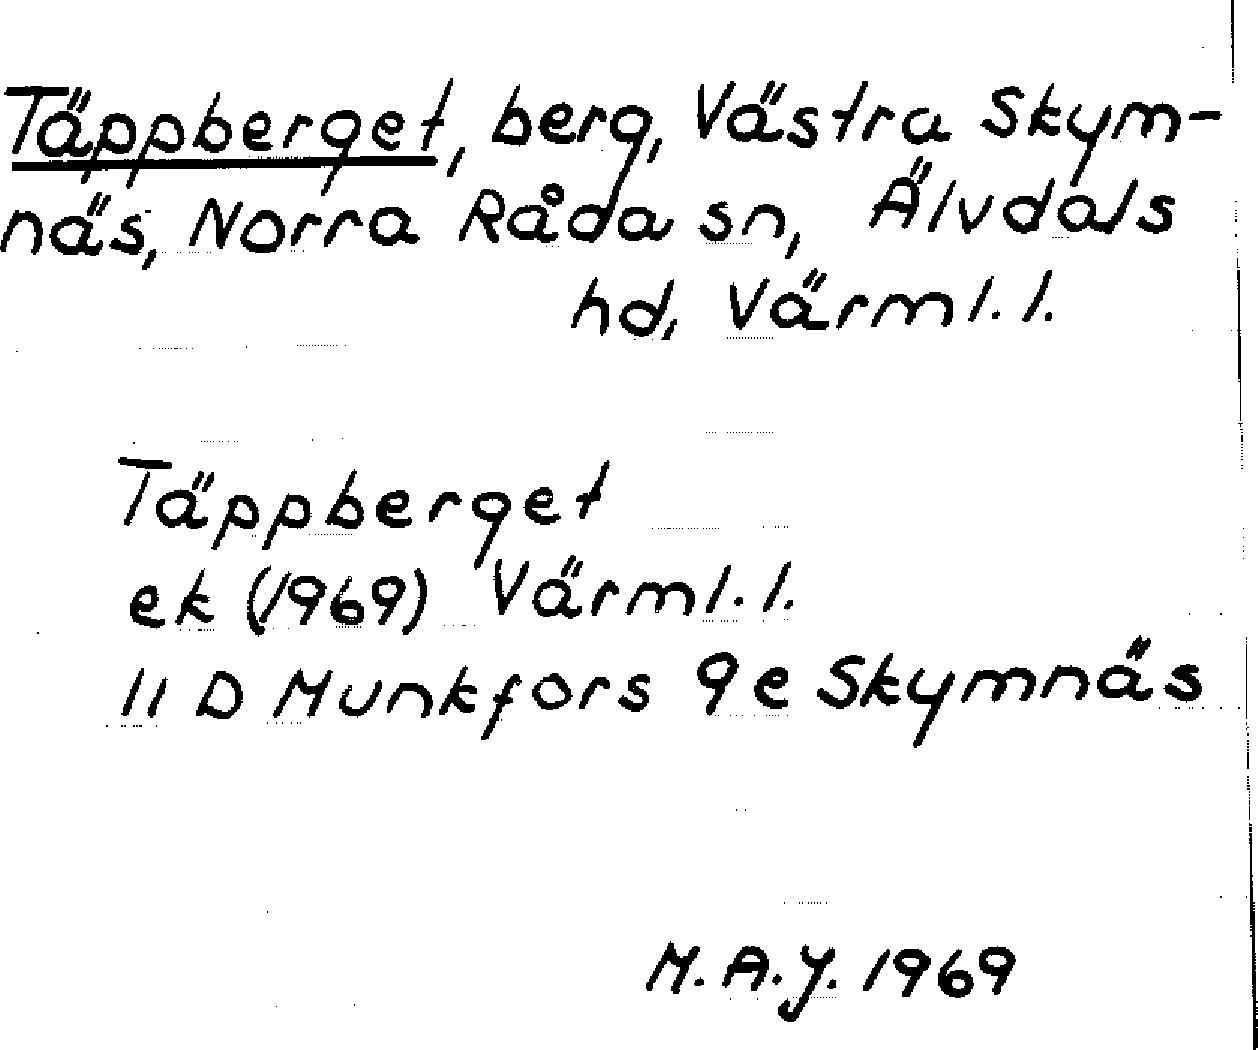 Täppberget, berg, Västra Skym-
näs, Norra Råda sn, Älvdals
hd, Värml. l.
Täppberget
ek (1969) Värml. l.
11 D Munkfors 9 e Skymnäs
M. A. J. 1969